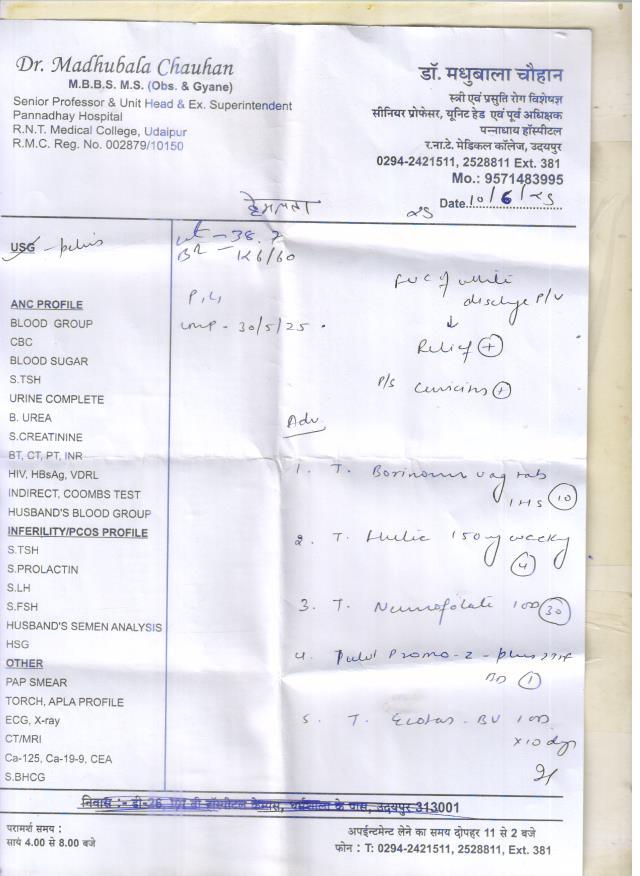 Dr. Madhubala Chauhan
M.B.B.S. M.S. (Obs. & Gyane)
Senior Professor & Unit Head & Ex. Superintendent
Pannadhay Hospital
R.N.T. Medical College, Udaipur
R.M.C. Reg. No. 002879/10150
डॉ. मधुबाला चौहान
स्त्री एवं प्रसुति रोग विशेषज्ञ
सीनियर प्रोफेसर, यूनिट हेड एवं पूर्व अधिक्षक
पन्नाधाय हॉस्पीटल
र.ना.टे. मेडिकल कॉलेज, उदयपुर
0294-2421511, 2528811 Ext. 381
Mo.: 9571483995
हेमलता
Date 10/6/25
USG - pelvis
wt - 38.7
P1L1
LMP - 30/5/25
FUC of white
discharge P/V
↓
Relief +
P/S Cervicitis +
ANC PROFILE
BLOOD GROUP
CBC
BLOOD SUGAR
S.TSH
URINE COMPLETE
B. UREA
S.CREATININE
BT, CT, PT, INR
HIV, HBsAg, VDRL
INDIRECT, COOMBS TEST
HUSBAND'S BLOOD GROUP
INFERILITY/PCOS PROFILE
S.TSH
S.PROLACTIN
S.LH
S.FSH
HUSBAND'S SEMEN ANALYSIS
HSG
OTHER
PAP SMEAR
TORCH, APLA PROFILE
ECG, X-ray
CT/MRI
Ca-125, Ca-19-9, CEA
S.BHCG
Adv.
1. T. vag tab
1 HS 10
2. T. 150mg weekly
4
3. T. 1OD 30
4. Promo-2-plus
BD 1
5. T. Ecotas-BV 1OD
x10 days
निवास :- डी-26, एम बी हॉस्पीटल केम्पस, धर्मशाला के पास, उदयपुर 313001
परामर्श समय :
सायं 4.00 से 8.00 बजे
अपईन्टमेन्ट लेने का समय दोपहर 11 से 2 बजे
फोन : T: 0294-2421511, 2528811, Ext. 381